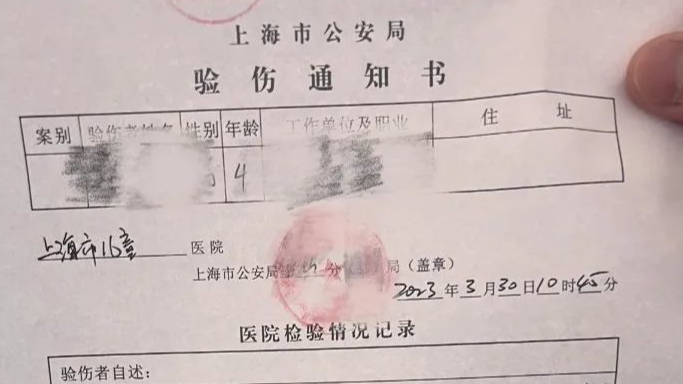 上海市公安局
验伤通知书
案别 验伤者姓名 性别 年龄 工作单位及职业 住址
4
上海市儿童 医院
上海市公安局 分 局(盖章)
2023年3月30日10时45分
医院检验情况记录
验伤者自述: